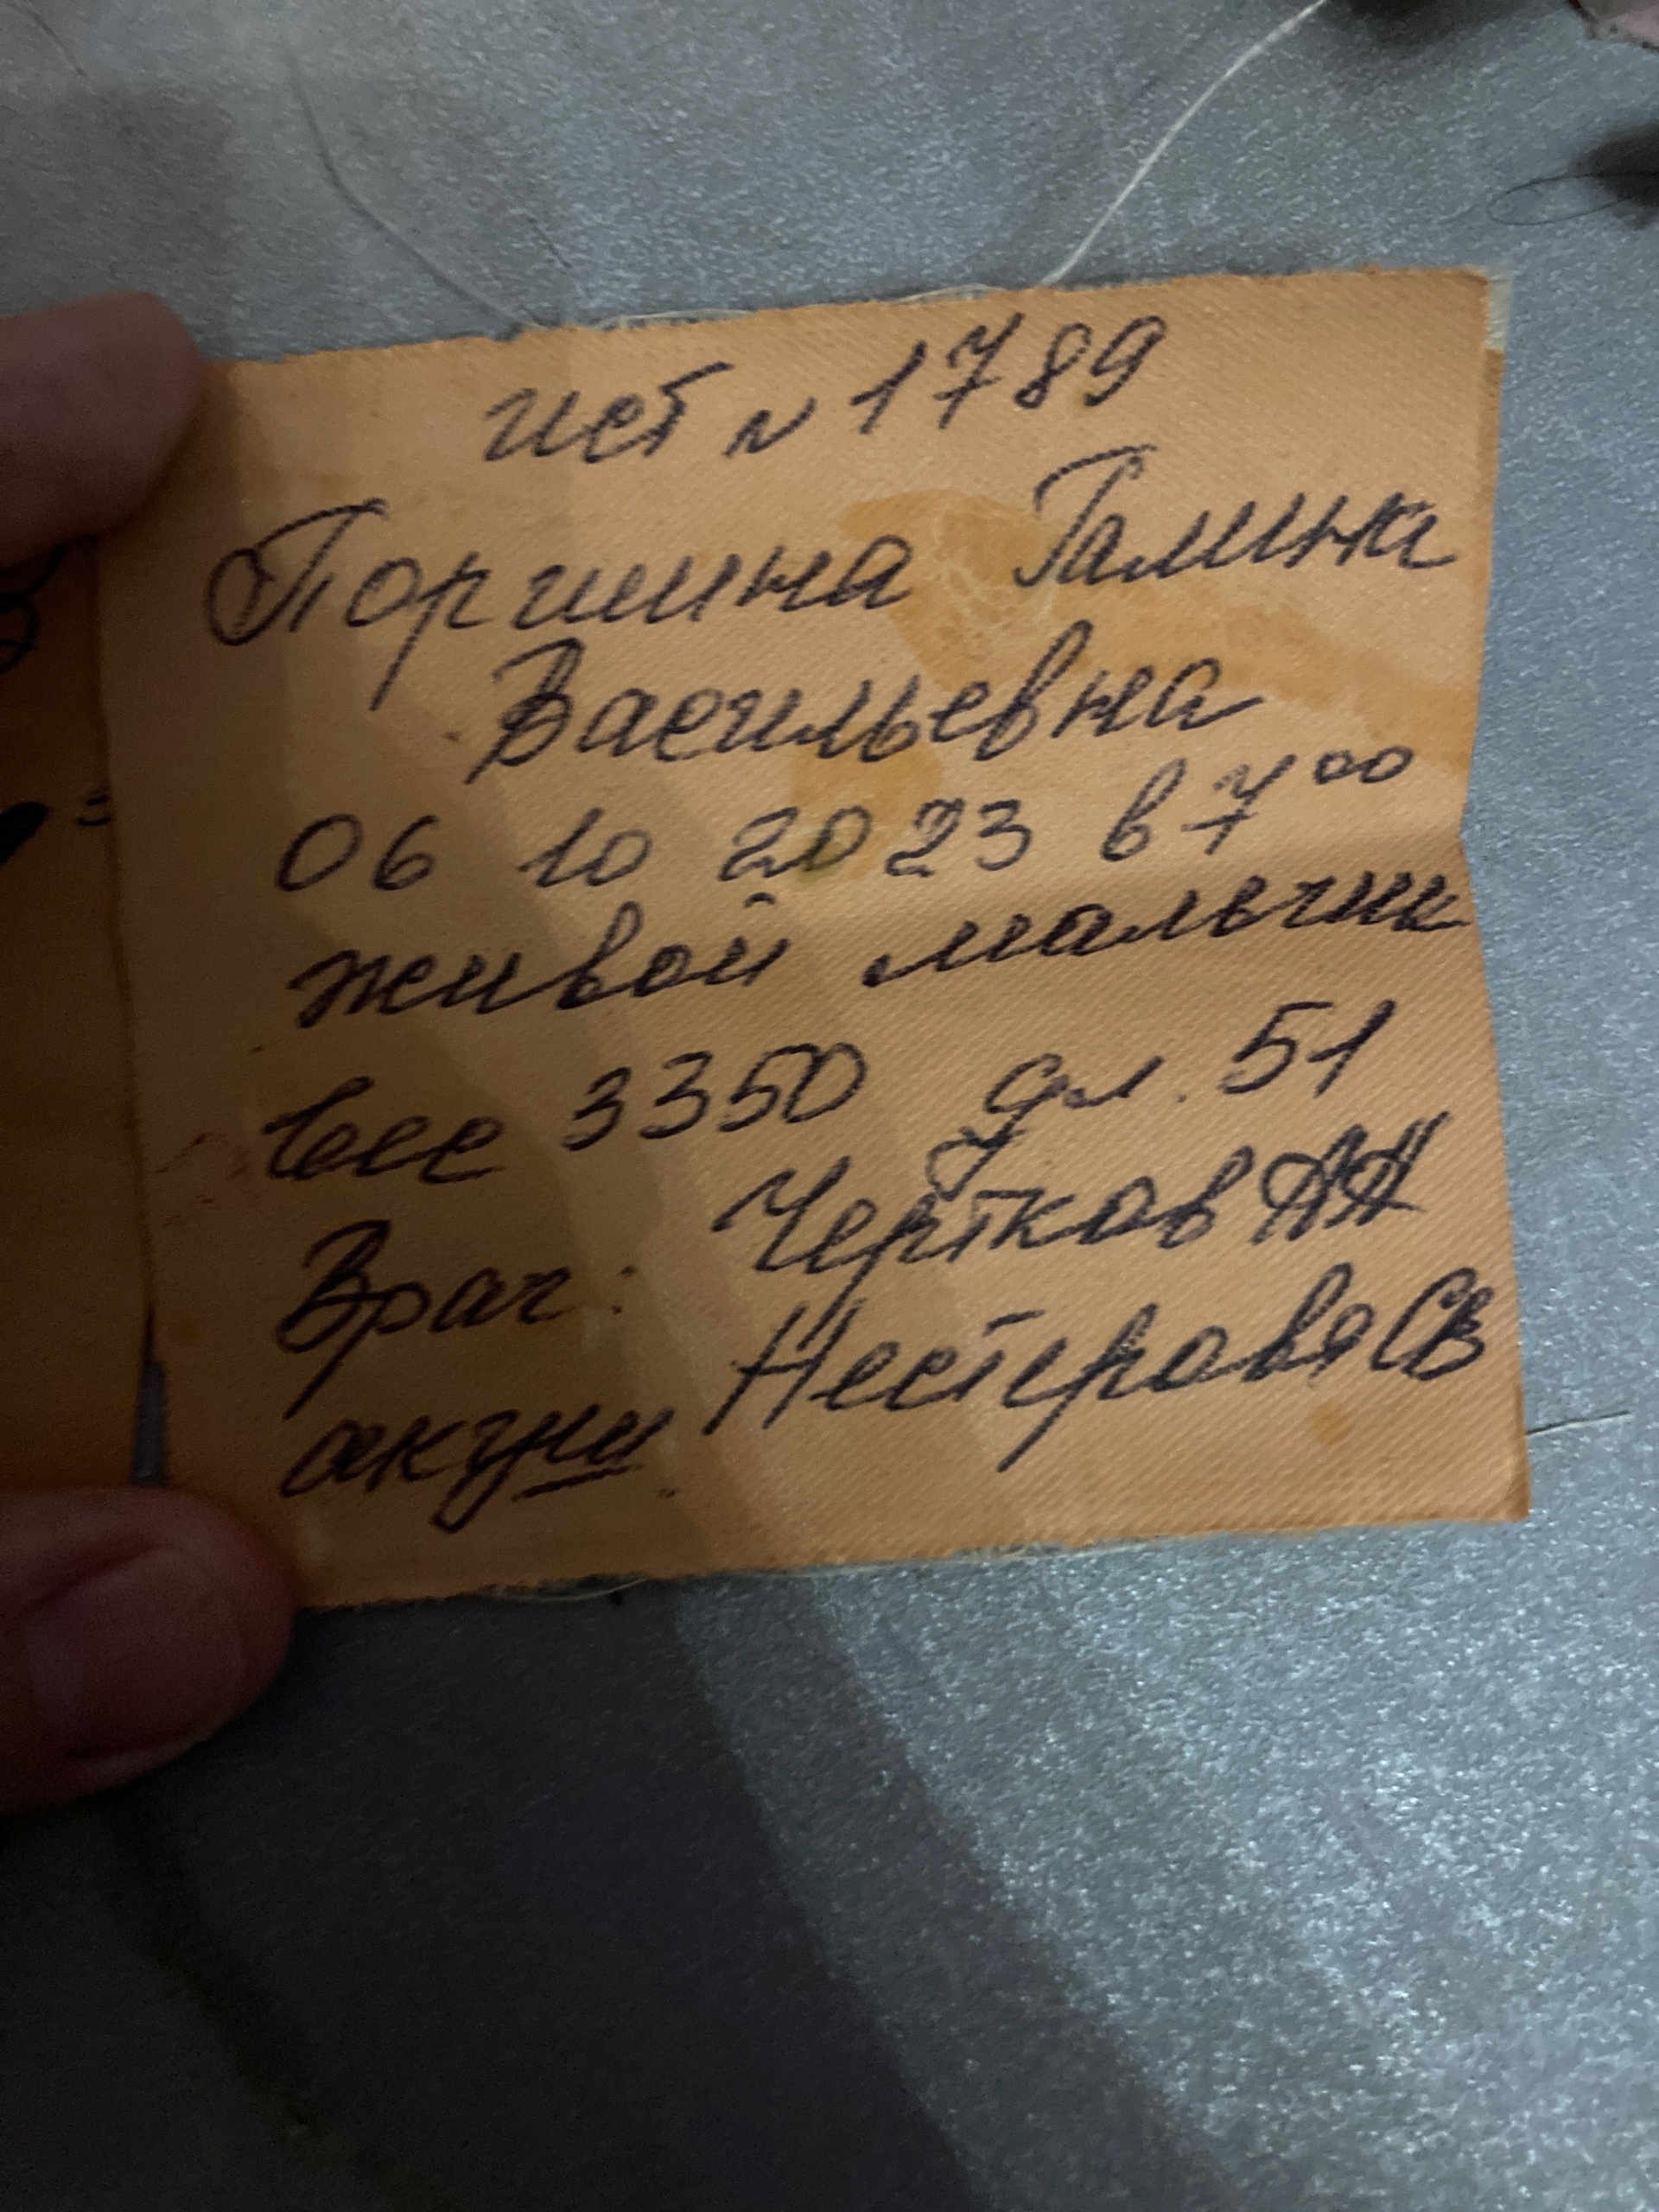 ист N 1789
Поргшина Галина
Васильевна
06 10 2023 в 7⁰⁰
живой мальчик
вес 3350 дл. 51
Врач: Чертков АН
акуш. Нестерова СВ